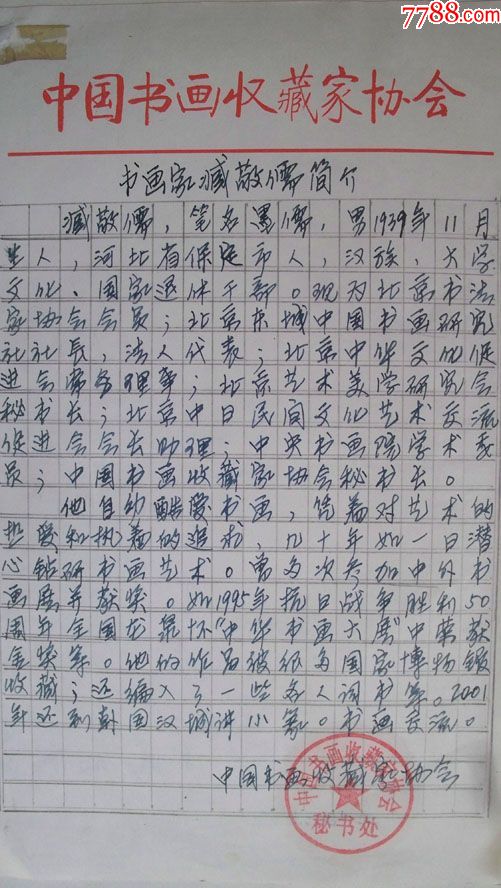 7788.com
中国书画收藏家协会
书画家臧敬儒简介
臧敬儒，笔名墨儒，男1939年11月
生人，河北省保定市人，汉族，大学
文化、国家退休干部。现为北京书法
家协会会员；北京东城中国书画研究
社社长，法人代表；北京中华文化促
进会常务理事；北京艺术美学研究会
秘书长；北京中日民间文化艺术交流
促进会会长助理；中央书画院学术委
员；中国书画收藏家协会秘书长。
他自幼酷爱书画，凭着对艺术的
热爱和执着的追求，几十年如一日潜
心钻研书画艺术。曾多次参加中外书
画展并获奖。如1995年抗日战争胜利50
周年全国龙鼎怀“中华书画大展”中荣获
金奖等。他的作品被很多国家博物馆
收藏；还编入了一些名人词书等。2001
年还到韩国汉城讲小篆。书画交流。
中国书画收藏家协会
中国书画收藏家协会
秘书处